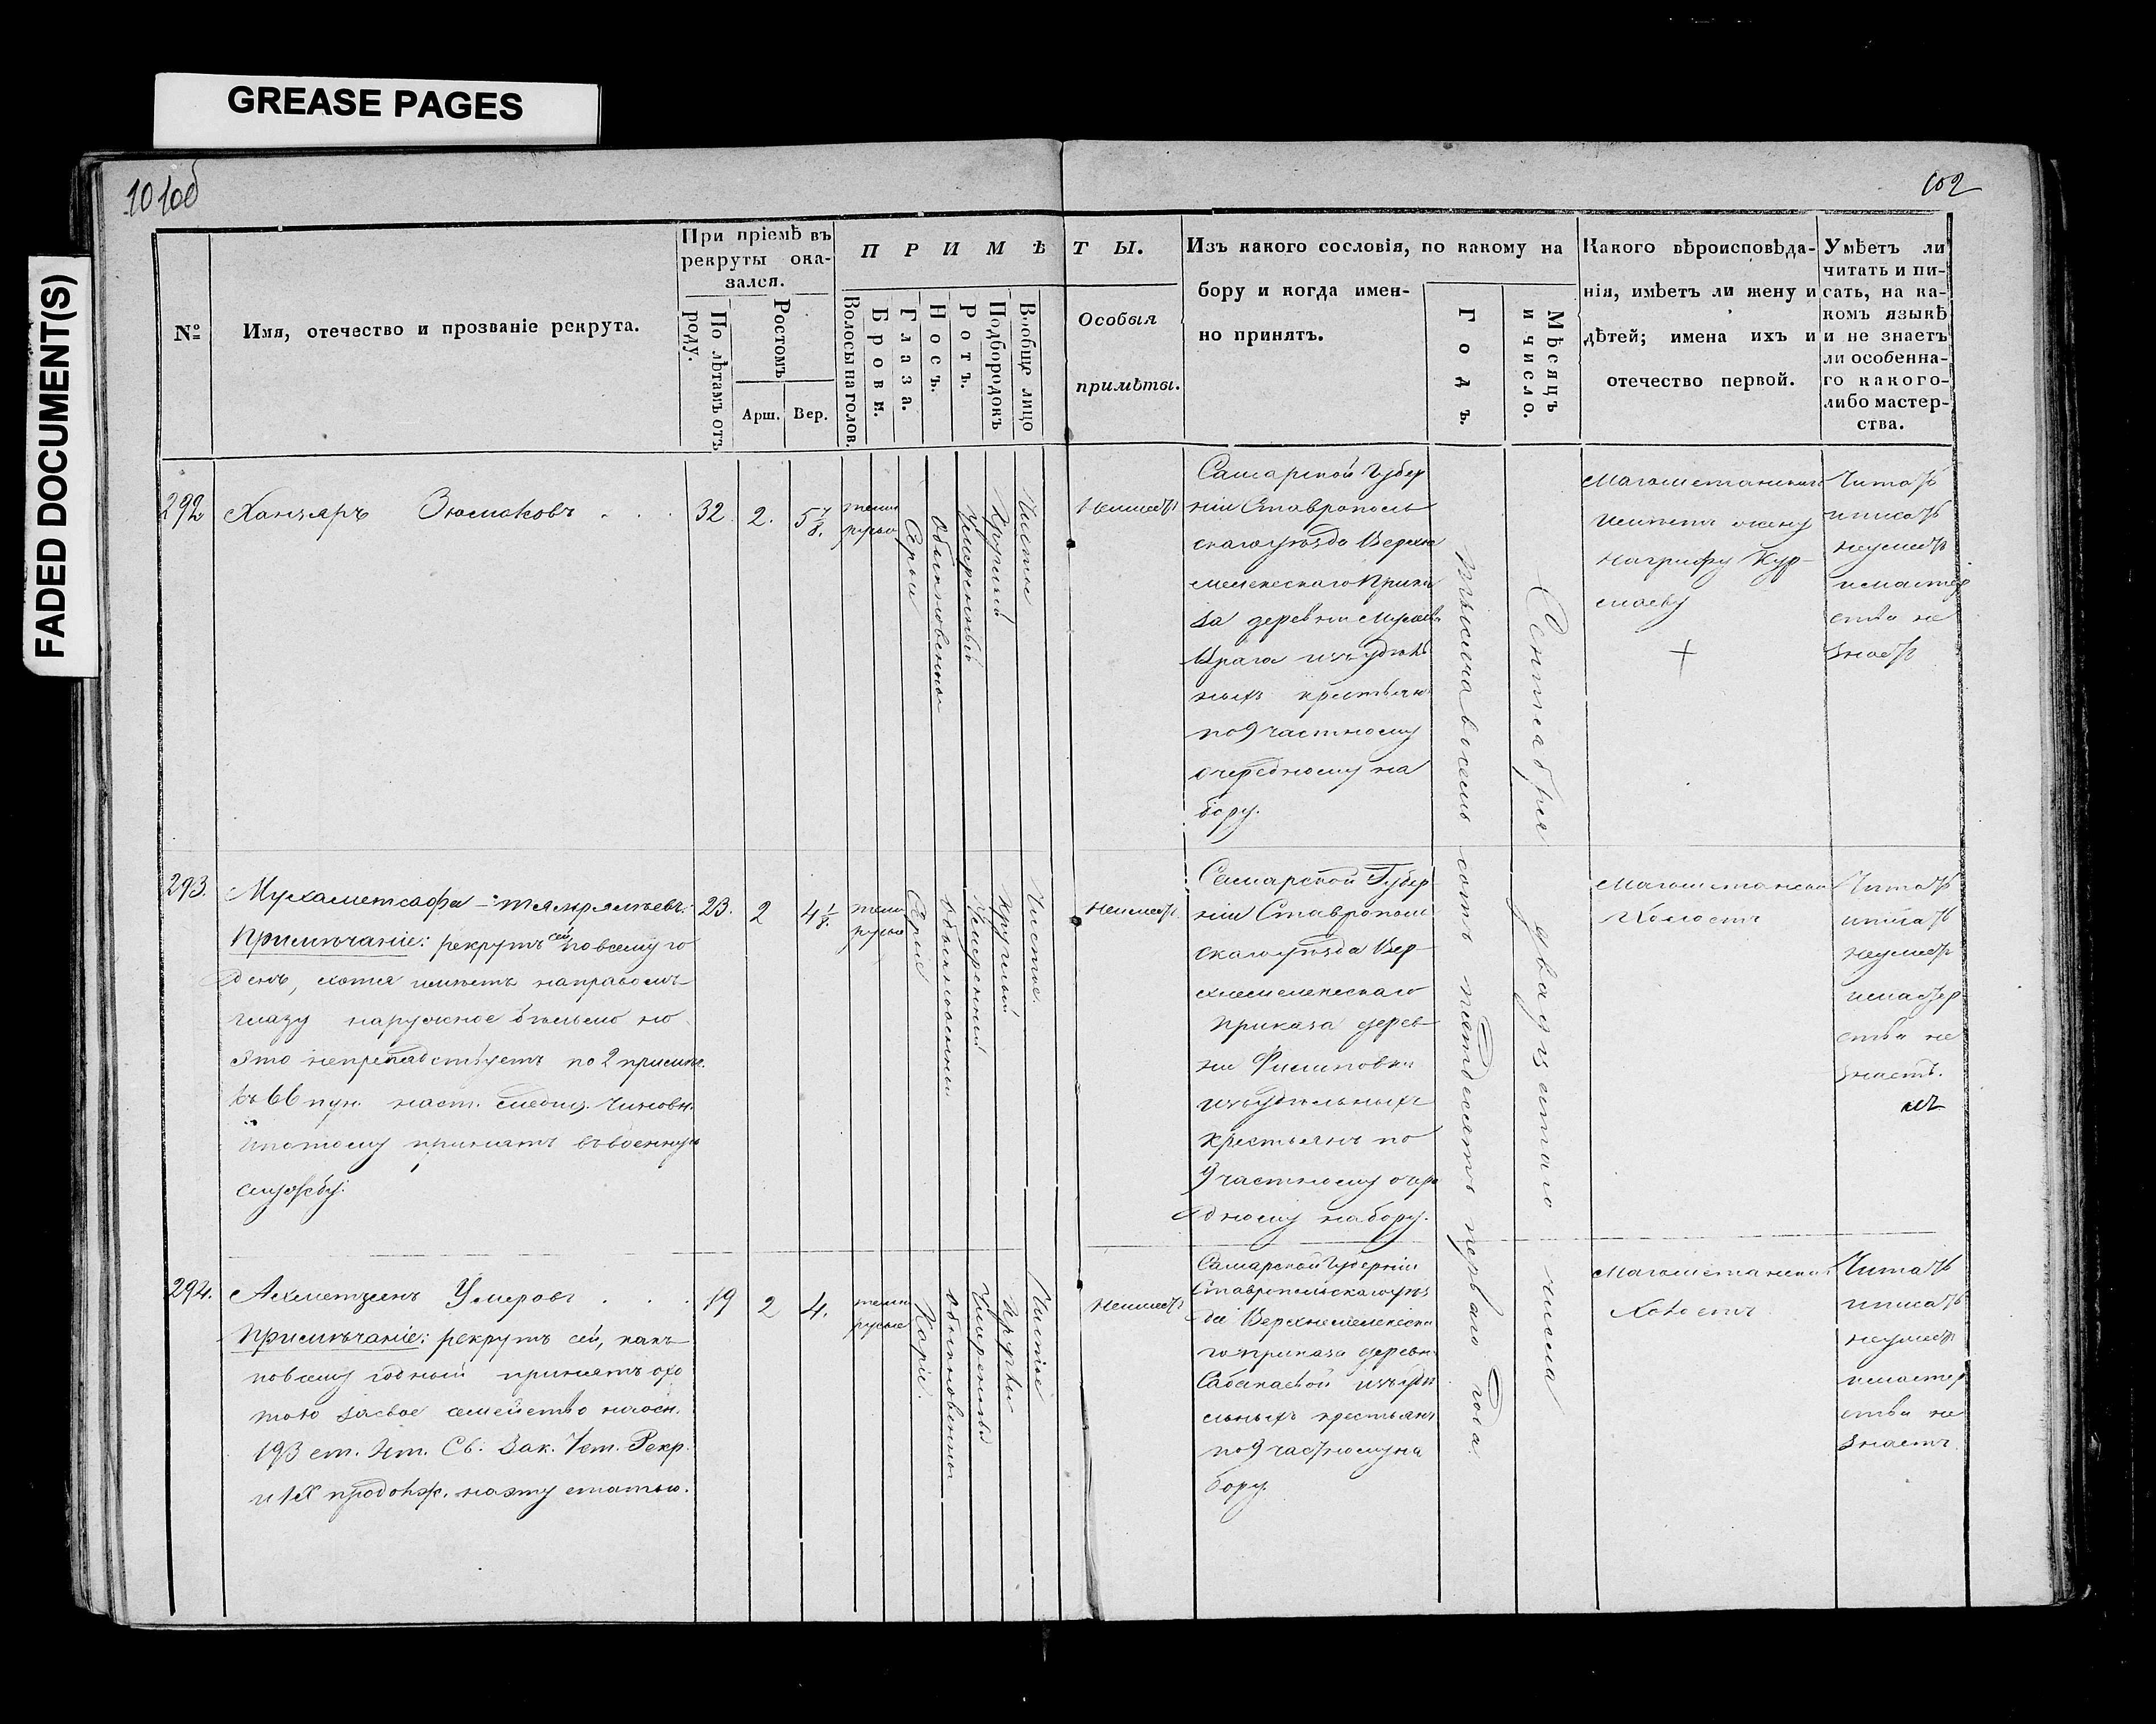 GREASE PAGES
FADED DOCUMENT(S)
101об
102
№
Имя, отечество и прозваніе рекрута.
При пріемѣ въ
рекруты ока-
зался.
По лѣтамъ отъ
роду.
Ростомъ
Арш.
Вер.
ПРИМѢТЫ.
Волосы на голов.
Брови.
Глаза.
Носъ.
Ротъ.
Подбородокъ
Вообще лицо
Особыя
примѣты.
Изъ какого сословія, по какому на
бору и когда имен-
но принятъ.
Годъ.
Мѣсяцъ
и число.
Какого вѣроисповѣда-
нія, имѣетъ ли жену и
дѣтей; имена ихъ и
отечество первой.
Умѣетъ ли
читать и пи-
сать, на ка-
комъ языкѣ
и не знаетъ
ли особенна-
го какого-
либо мастер-
ства.
292
32
2.
темно
русые
Серые
Обыкновенный
Умеренный
Круглый
Чистое
Неимеетъ
Самарской Губер
ніи Ставрополь
скаго уѣзда Верхне
мелекескаго Прика
за деревни
Врага изъ удѣль
ныхъ крестьянъ
по 9 частному
очередному на
бору.
Тысяча восемь сотъ пятдесятъ перваго года
Сентября двадцатаго числа
Магометанской
имѣетъ жену
Читать
иписать
неумеетъ
имастер
ства не
знаетъ
293.
Примѣчаніе: рекрутъ сей по всему го
денъ, хотя имѣетъ направомъ
глазу наружное бѣльмо но
это непрепядствуетъ по 2 примѣч.
къ 66 пун. наст. Чиновн.
ипотому принятъ въ военную
службу.
23.
2
4 1/8.
темно
русые
Серые
обыкновенный
Умеренный
Круглый
Чистое.
Неимеетъ.
Самарской Губер
ніи Ставрополь
скаго уѣзда Вер
хнемелекескаго
приказа дерев
ни Филиповки
изъ удѣльныхъ
крестьянъ по
9 частному очере
дному набору.
Магометанской
Холостъ
Читать
иписать
неумеетъ
имастер
ства не
знаетъ.
294.
Ахметзянъ Умеровъ
Примѣчаніе: рекрутъ сей, какъ
повсему годный принятъ охо
тою за свое семейство наосн.
193 ст. Св. Зак. Уст. Рекр.
и IX продолж. наэту статью.
19
2
4.
темно
русые
Каріе.
Обыкновенный
Умеренный
Круглый
Чистое
Неимеетъ
Самарской Губерніи
Ставропольскаго уѣз
да Верхнемелекеска
го приказа деревни
Сабакаевой изъ удѣ
льныхъ крестьянъ
по 9 частному на
бору.
Магометанской
Холостъ
Читать
иписать
неумеетъ
имастер
ства не
знаетъ